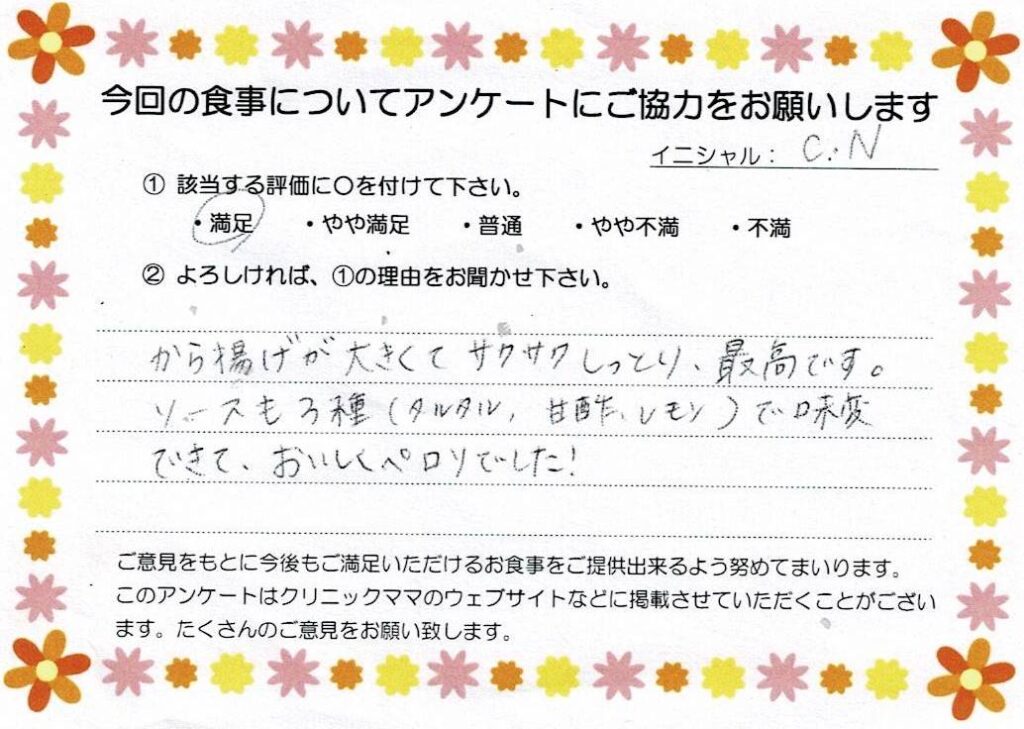 今回の食事についてアンケートにご協力をお願いします
イニシャル： C.N
① 該当する評価に〇を付けて下さい。
・満足 ・やや満足 ・普通 ・やや不満 ・不満
② よろしければ、①の理由をお聞かせ下さい。
から揚げが大きくてサクサクしっとり、最高です。
ソースも3種（タルタル, 甘酢, レモン）で味変
できて、おいしくペロリでした!
ご意見をもとに今後もご満足いただけるお食事をご提供出来るよう努めてまいります。
このアンケートはクリニックママのウェブサイトなどに掲載させていただくことがござい
ます。たくさんのご意見をお願い致します。